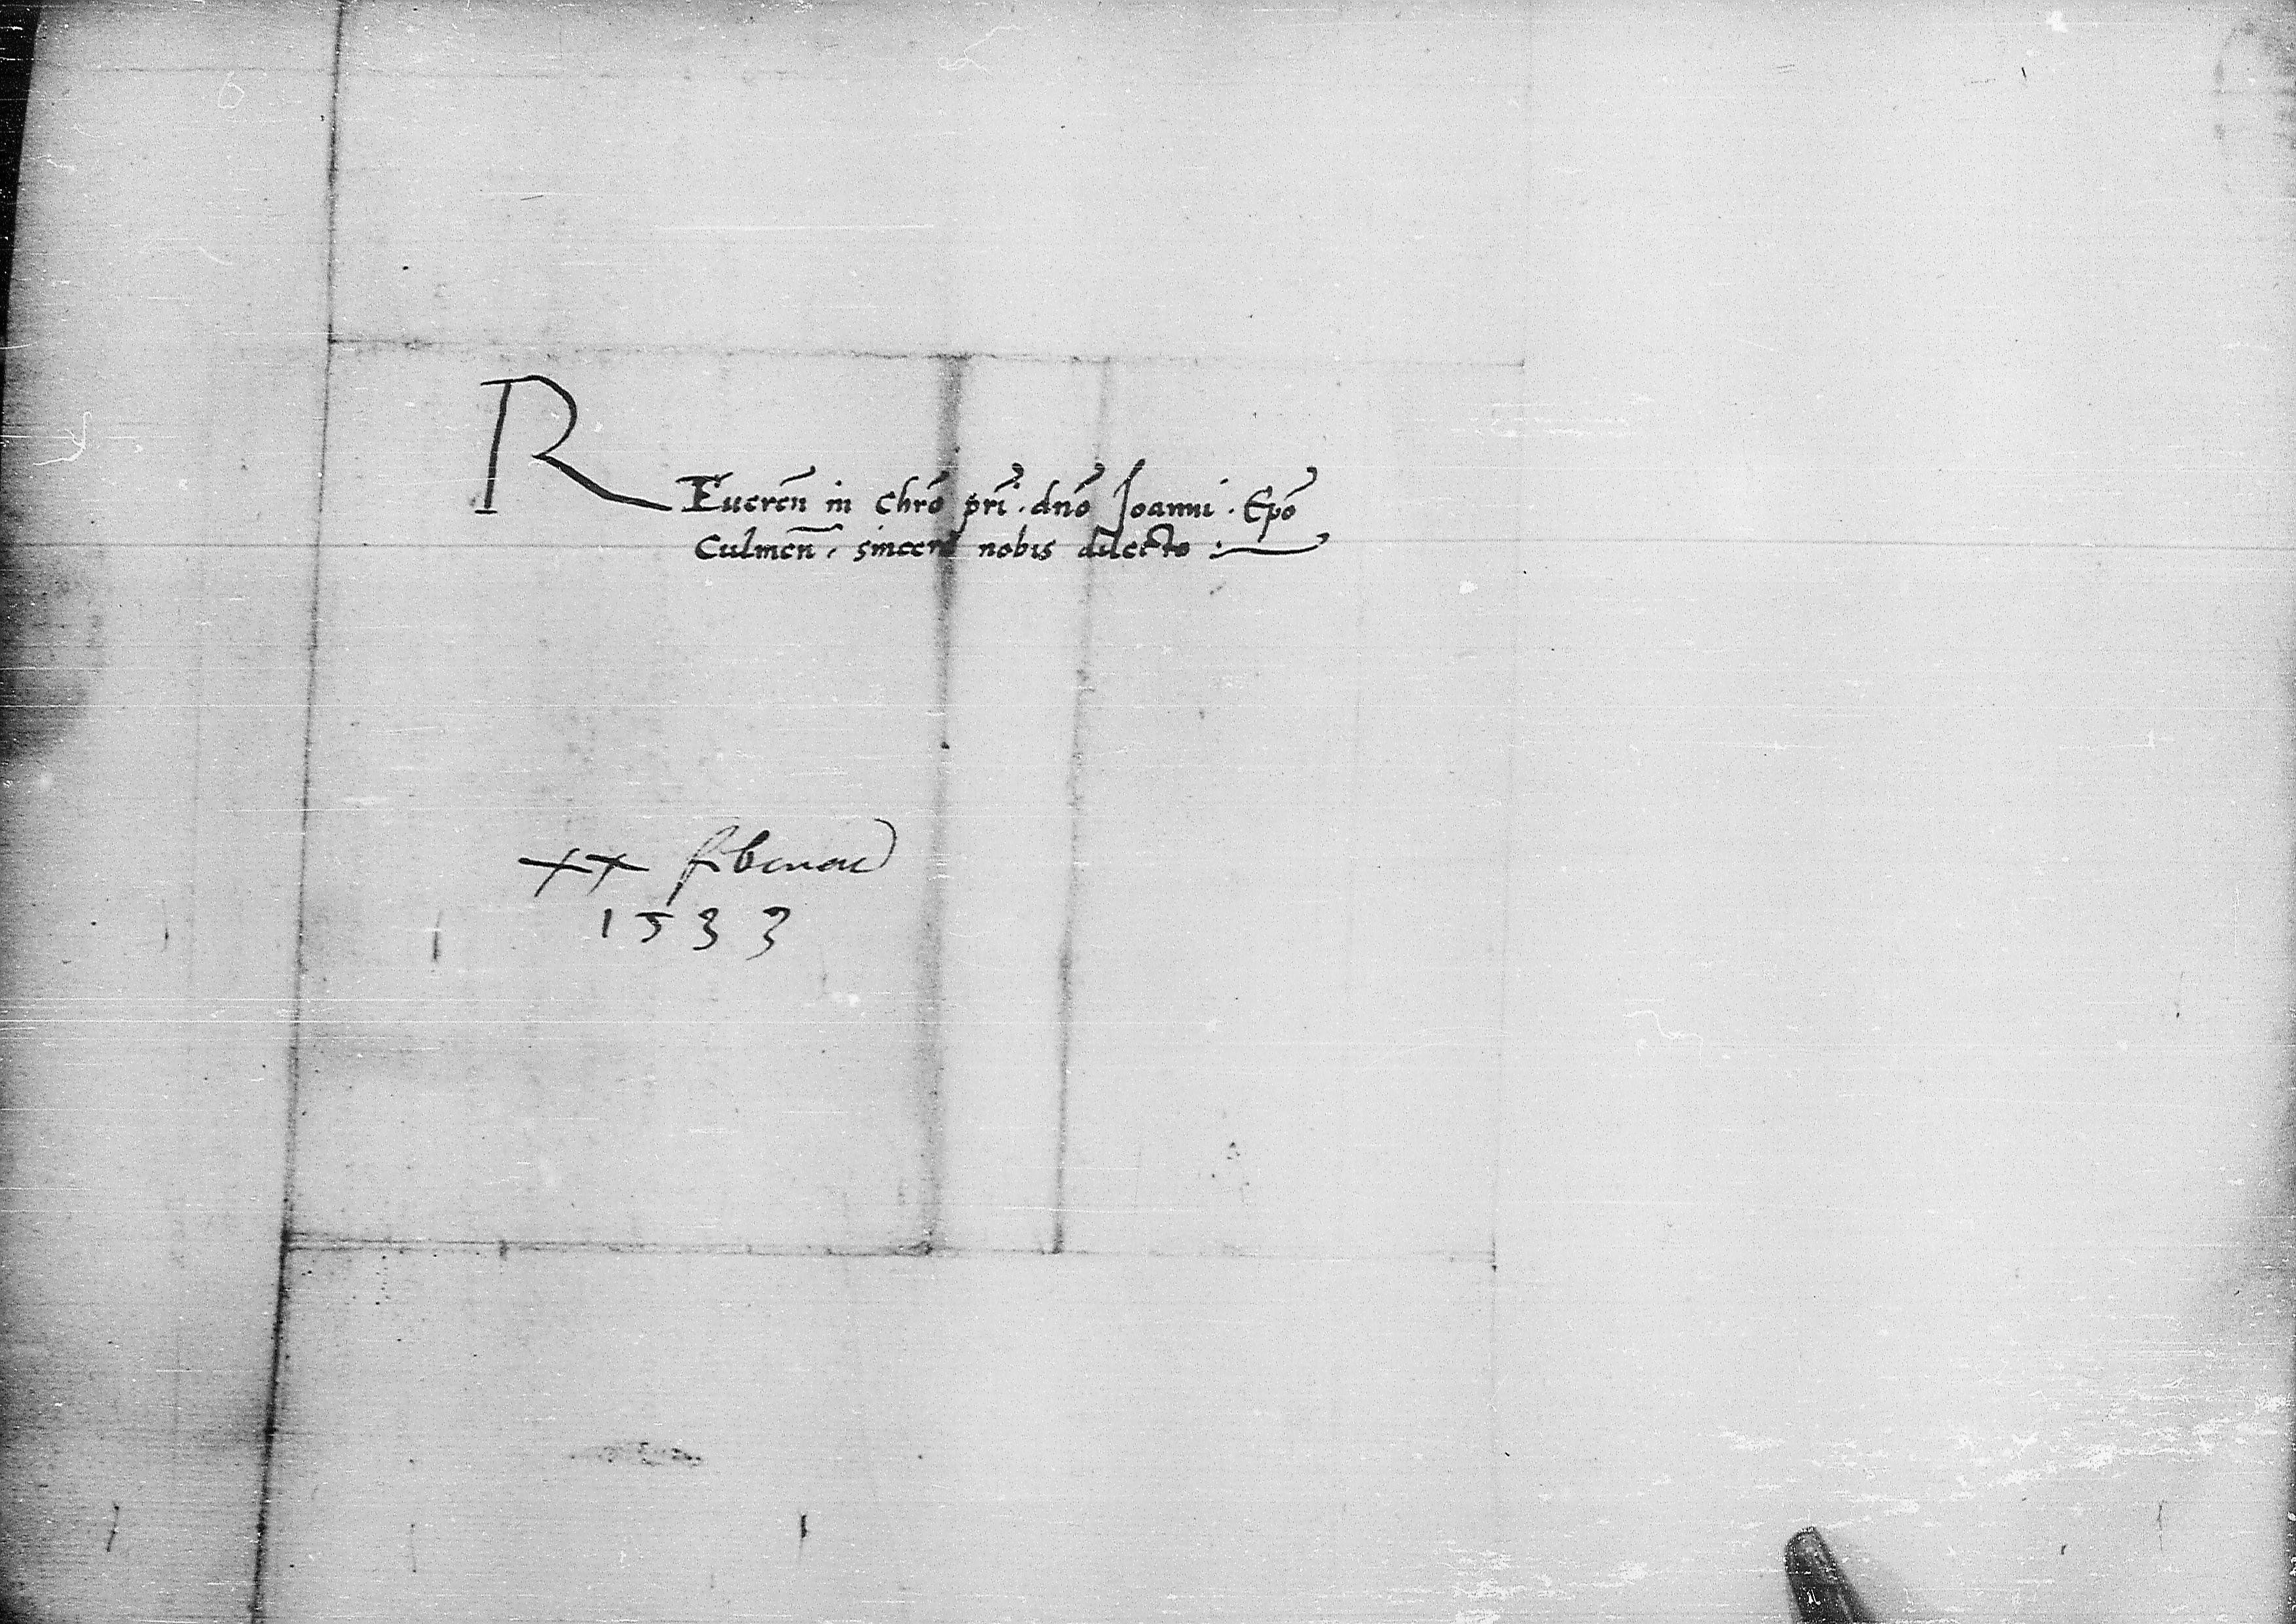 REueren̄ in Chr̄o pr̄i. dn̄o Ioanni. Ep̄o
Culmen̄. sincere nobis dilecto:
xx februarii
1533